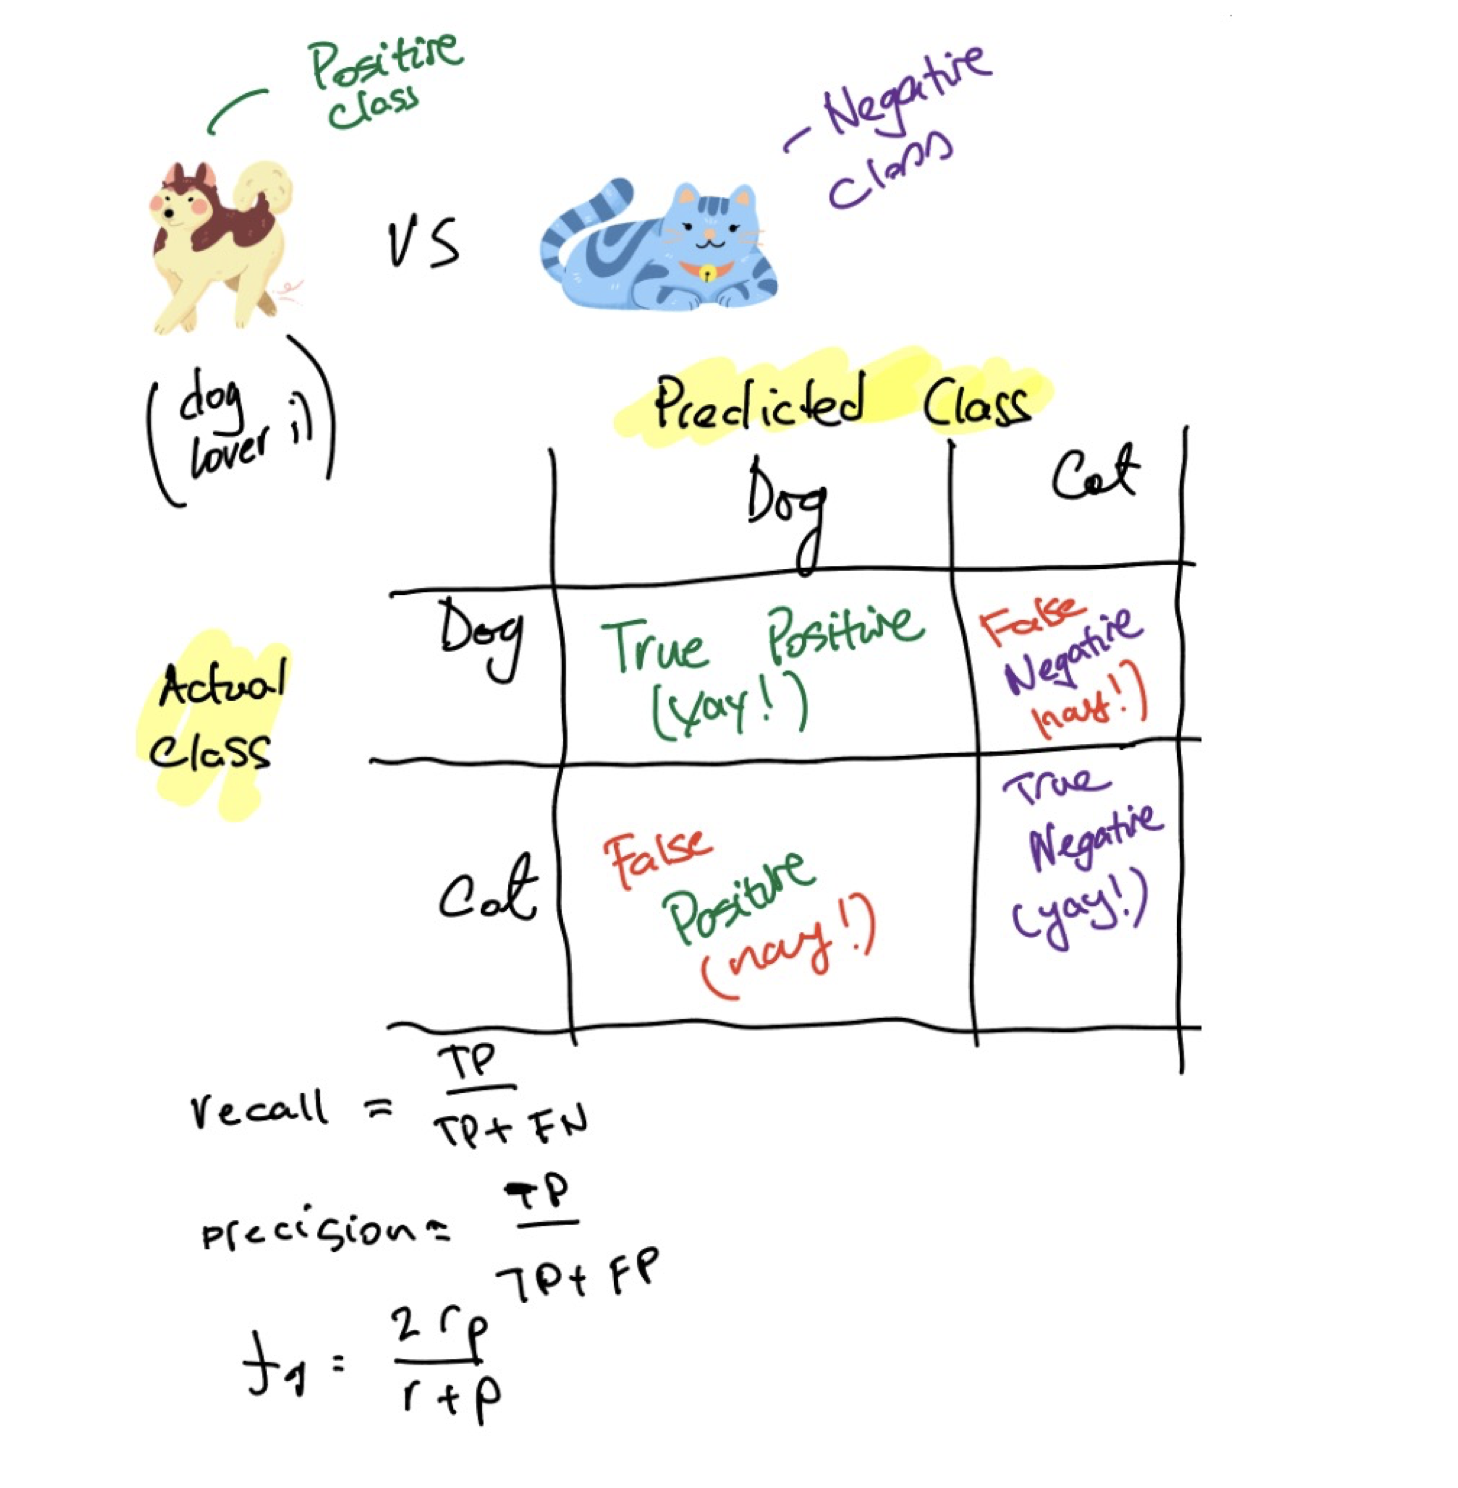 Positive
class
Negative
class
VS
(dog
lover :))
Predicted Class
Dog
Cat
Actual
Class
Dog
True Positive
(yay!)
False
Negative
nay!)
Cat
False
Positive
(nay!)
True
Negative
(yay!)
recall = TP
TP + FN
precision = TP
TP + FP
f1 = 2rp
r + p